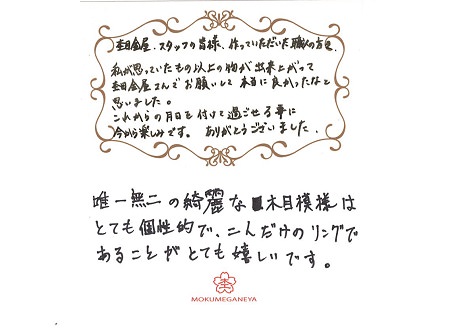 杢目金屋、スタッフの皆様、作っていただいた職人の方々、
私が思っていたもの以上の物が出来上がって
杢目金屋さんでお願いして本当に良かったなと
思いました。
これからの月日を付けて過ごせる事に
今から楽しみです。ありがとうございました。
唯一無二の綺麗な木目模様は
とても個性的で、二人だけのリングで
あることがとても嬉しいです。
MOKUMEGANEYA